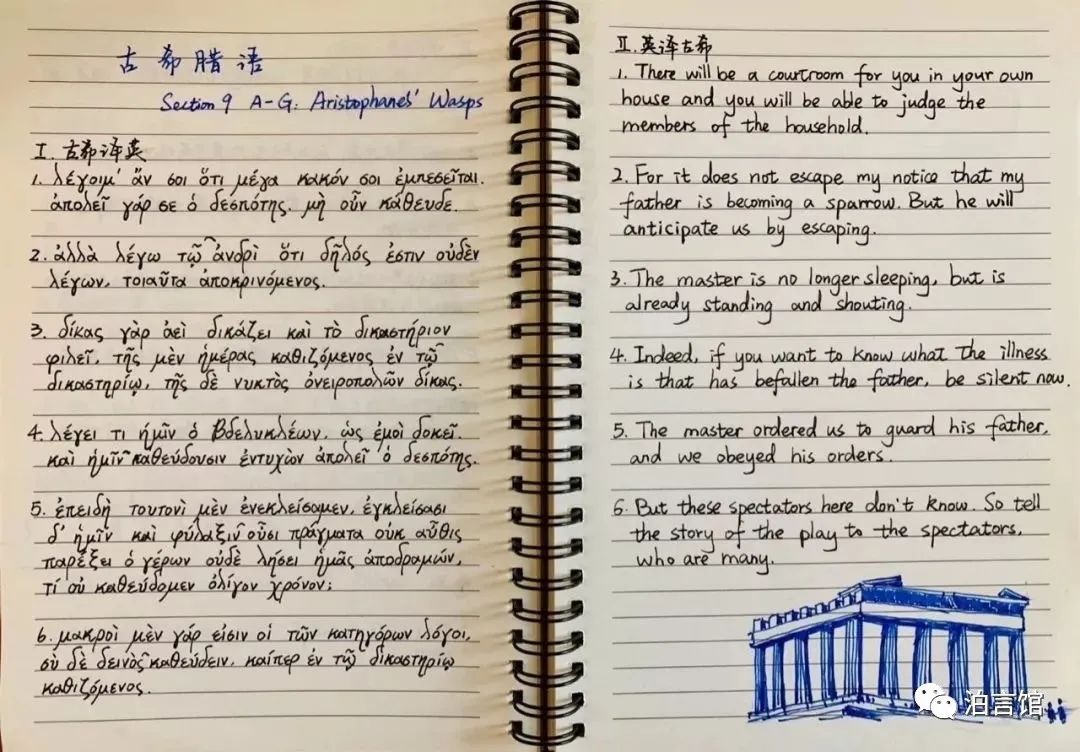 古希腊语
Section 9 A-G: Aristophanes' Wasps
I. 古希译英
1. λέγοιμ' ἄν σοι ὅτι μέγα κακόν σοι ἐμπεσεῖται.
ἀπολεῖ γάρ σε ὁ δεσπότης. μὴ οὖν κάθευδε.
2. ἀλλὰ λέγω τῷ ἀνδρὶ ὅτι δῆλός ἐστιν οὐδὲν
λέγων, τοιαῦτα ἀποκρινόμενος.
3. δίκας γὰρ ἀεὶ δικάζει καὶ τὸ δικαστήριον
φιλεῖ, τῆς μὲν ἡμέρας καθιζόμενος ἐν τῷ
δικαστηρίῳ, τῆς δὲ νυκτὸς ὀνειροπολῶν δίκας.
4. λέγει τι ἡμῖν ὁ Βδελυκλέων, ὡς ἐμοὶ δοκεῖ.
καὶ ἡμῖν καθεύδουσιν ἐντυχὼν ἀπολεῖ ὁ δεσπότης.
5. ἐπειδὴ τουτονὶ μὲν ἐνεκλείσαμεν, ἐγκλείσασι
δ' ἡμῖν καὶ φύλαξιν οὖσι πράγματα οὐκ αὖθις
παρέξει ὁ γέρων οὐδὲ λήσει ἡμᾶς ἀποδραμών,
τί οὐ καθεύδομεν ὀλίγον χρόνον;
6. μακροὶ μὲν γάρ εἰσιν οἱ τῶν κατηγόρων λόγοι,
σὺ δὲ δεινὸς καθεύδειν, καίπερ ἐν τῷ δικαστηρίῳ
καθιζόμενος.
II. 英译古希
1. There will be a courtroom for you in your own
house and you will be able to judge the
members of the household.
2. For it does not escape my notice that my
father is becoming a sparrow. But he will
anticipate us by escaping.
3. The master is no longer sleeping, but is
already standing and shouting.
4. Indeed, if you want to know what the illness
is that has befallen the father, be silent now.
5. The master ordered us to guard his father,
and we obeyed his orders.
6. But these spectators here don't know. So tell
the story of the play to the spectators,
who are many.
泊言馆